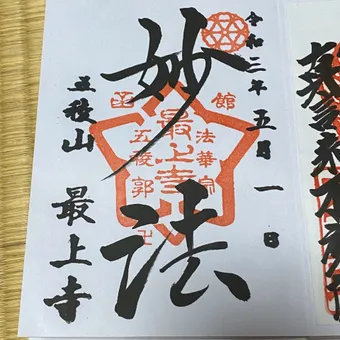 令和二年五月一日
妙法
五稜山 最上寺
函館
法華宗
最上寺
五稜郭
卍